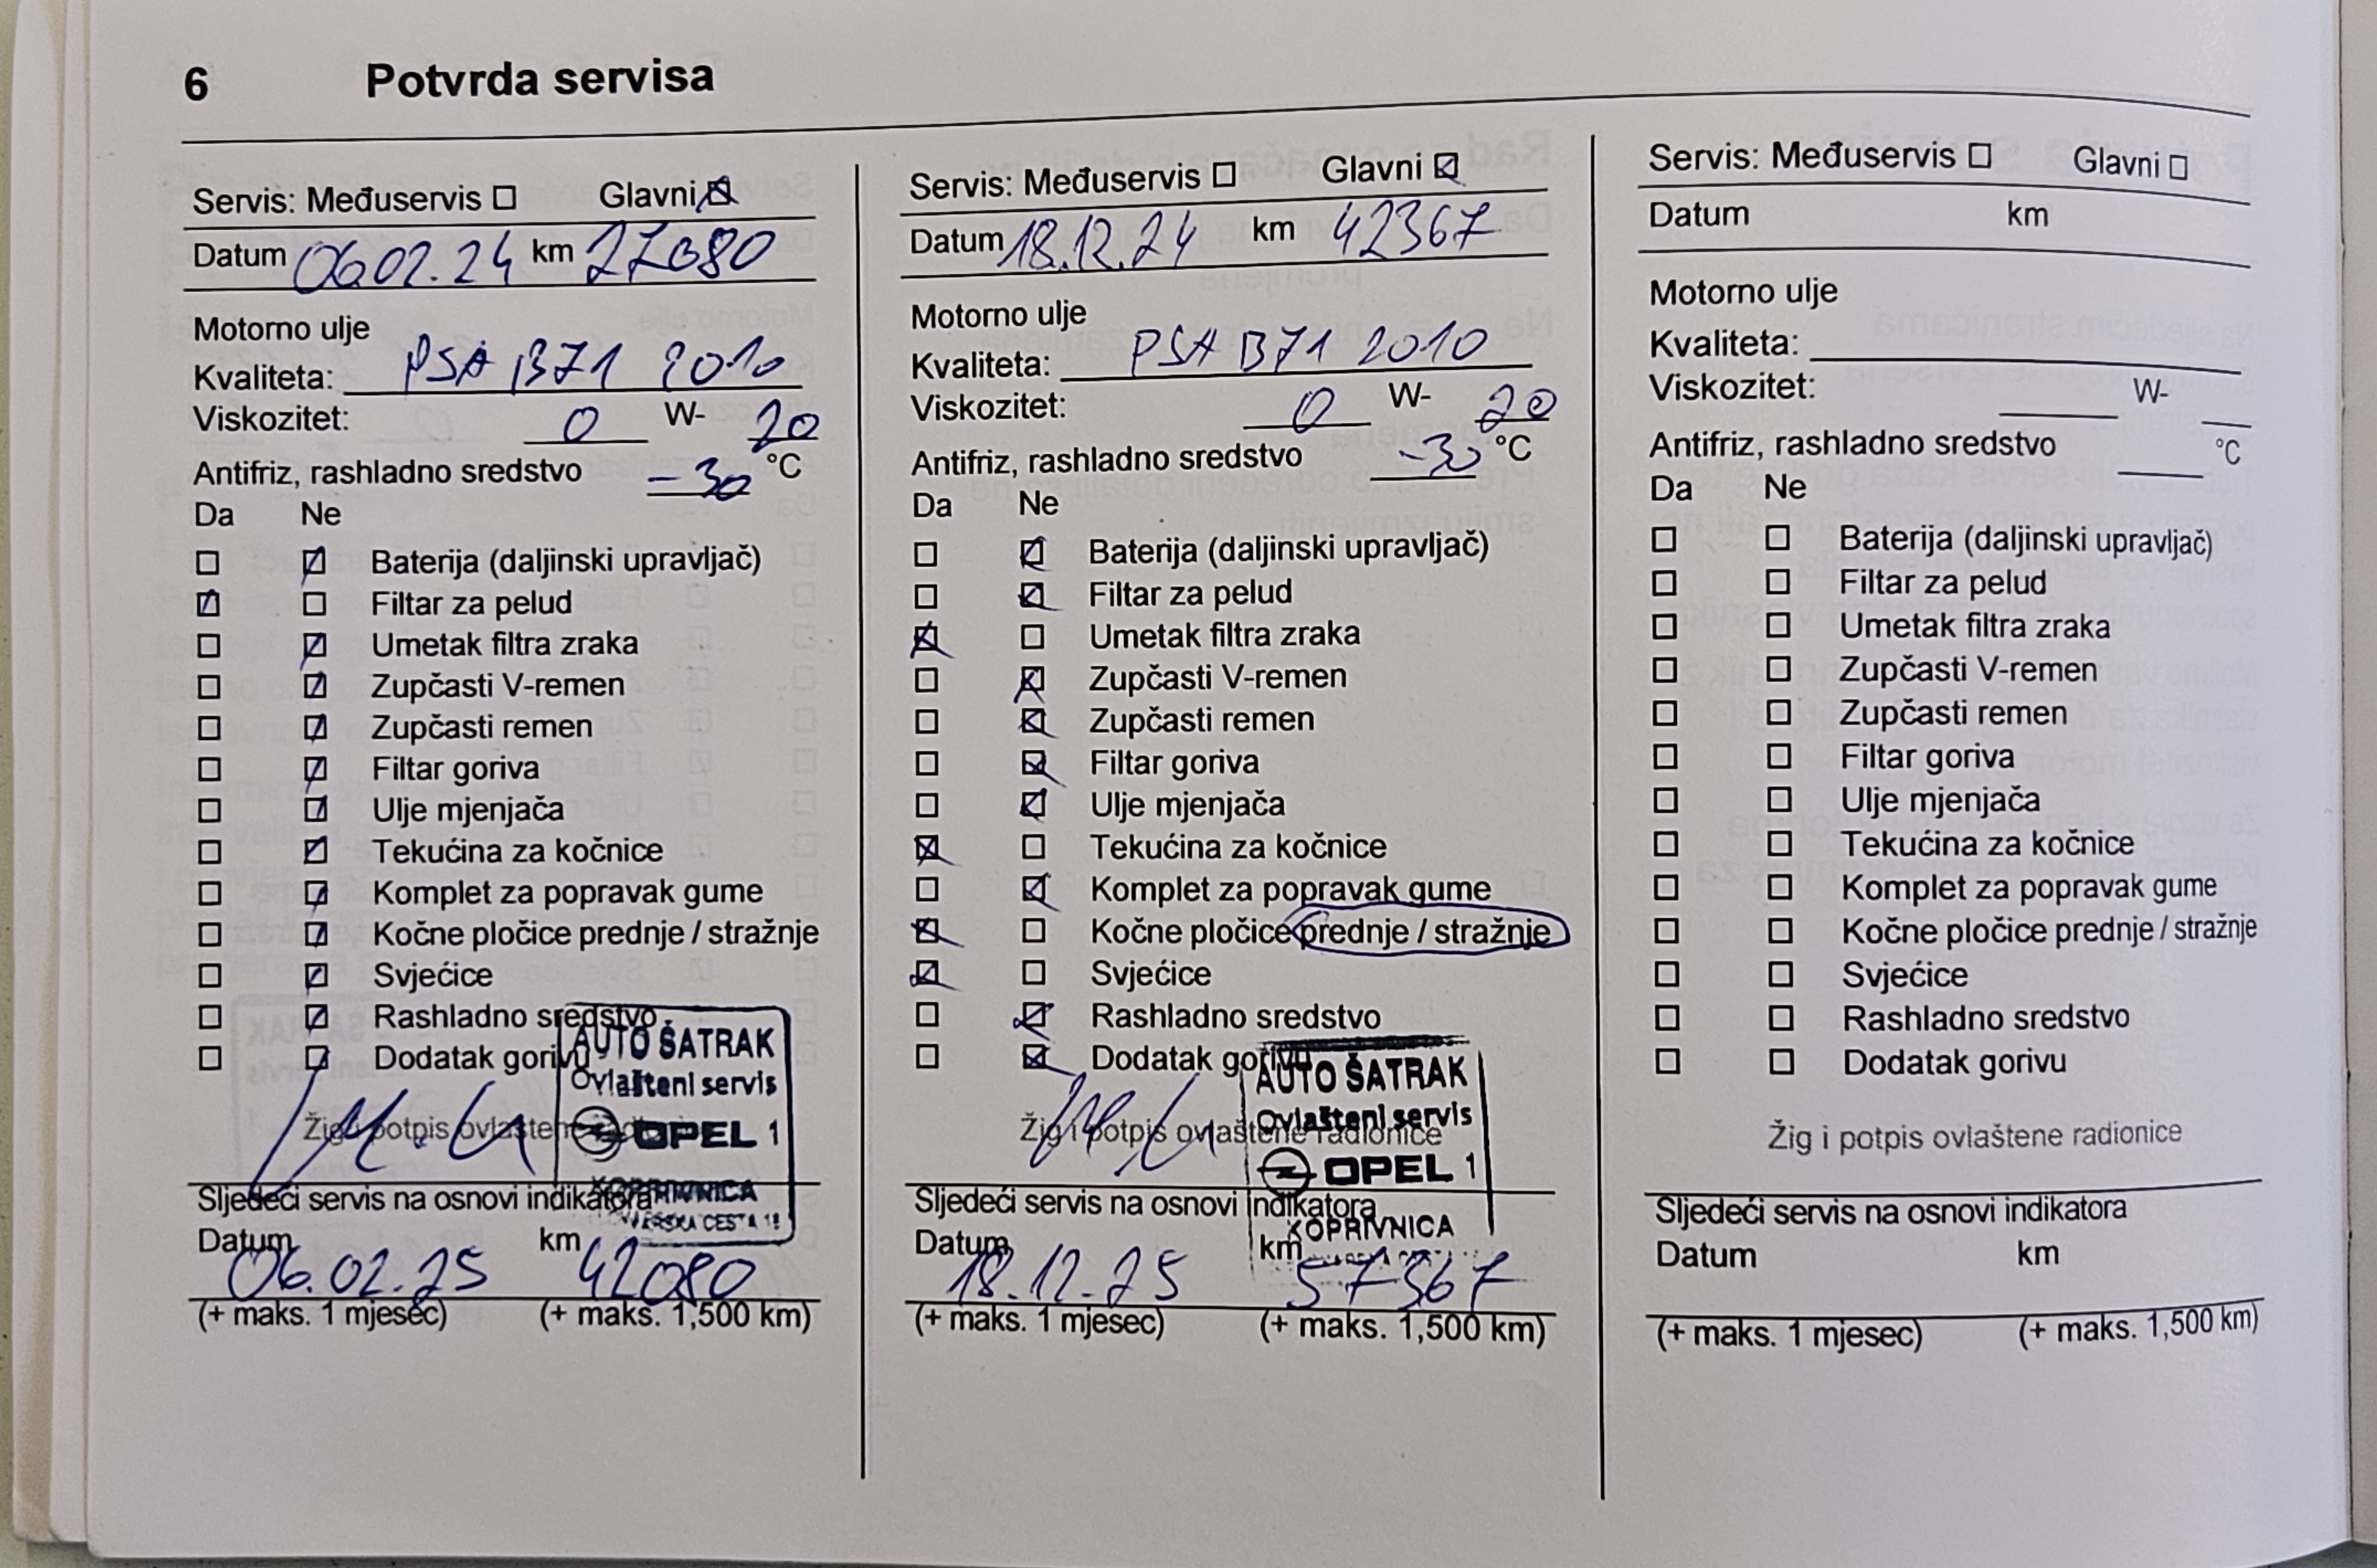 6 Potvrda servisa
Servis: Međuservis ☐ Glavni ☒
Datum 06.02.24 km 27080
Motorno ulje
Kvaliteta: PSA B71 2010
Viskozitet: 0 W- 20
Antifriz, rashladno sredstvo -30 °C
Da Ne
☐ ☒ Baterija (daljinski upravljač)
☒ ☐ Filtar za pelud
☐ ☒ Umetak filtra zraka
☐ ☒ Zupčasti V-remen
☐ ☒ Zupčasti remen
☐ ☒ Filtar goriva
☐ ☒ Ulje mjenjača
☐ ☒ Tekućina za kočnice
☐ ☒ Komplet za popravak gume
☐ ☒ Kočne pločice prednje / stražnje
☐ ☒ Svjećice
☐ ☒ Rashladno sredstvo
☐ ☒ Dodatak gorivu
AUTO ŠATRAK
Ovlašteni servis
OPEL 1
KOPRIVNICA
CESTA
Žig i potpis ovlaštene
Sljedeći servis na osnovi indikatora
Datum 06.02.25 km 42080
(+ maks. 1 mjesec) (+ maks. 1,500 km)
Servis: Međuservis ☐ Glavni ☒
Datum 18.12.24 km 42367
Motorno ulje
Kvaliteta: PSA B71 2010
Viskozitet: 0 W- 20
Antifriz, rashladno sredstvo -30 °C
Da Ne
☐ ☒ Baterija (daljinski upravljač)
☐ ☒ Filtar za pelud
☒ ☐ Umetak filtra zraka
☐ ☒ Zupčasti V-remen
☐ ☒ Zupčasti remen
☐ ☒ Filtar goriva
☐ ☒ Ulje mjenjača
☒ ☐ Tekućina za kočnice
☐ ☒ Komplet za popravak gume
☒ ☐ Kočne pločice prednje / stražnje
☒ ☐ Svjećice
☐ ☒ Rashladno sredstvo
☐ ☒ Dodatak gorivu
AUTO ŠATRAK
Ovlašteni servis
OPEL 1
KOPRIVNICA
Žig i potpis ovlaštene radionice
Sljedeći servis na osnovi indikatora
Datum 18.12.25 km 57367
(+ maks. 1 mjesec) (+ maks. 1,500 km)
Servis: Međuservis ☐ Glavni ☐
Datum km
Motorno ulje
Kvaliteta:
Viskozitet: W-
Antifriz, rashladno sredstvo °C
Da Ne
☐ ☐ Baterija (daljinski upravljač)
☐ ☐ Filtar za pelud
☐ ☐ Umetak filtra zraka
☐ ☐ Zupčasti V-remen
☐ ☐ Zupčasti remen
☐ ☐ Filtar goriva
☐ ☐ Ulje mjenjača
☐ ☐ Tekućina za kočnice
☐ ☐ Komplet za popravak gume
☐ ☐ Kočne pločice prednje / stražnje
☐ ☐ Svjećice
☐ ☐ Rashladno sredstvo
☐ ☐ Dodatak gorivu
Žig i potpis ovlaštene radionice
Sljedeći servis na osnovi indikatora
Datum km
(+ maks. 1 mjesec) (+ maks. 1,500 km)